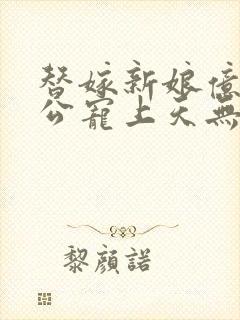 替嫁新娘億
公寵上天無
黎顏諾